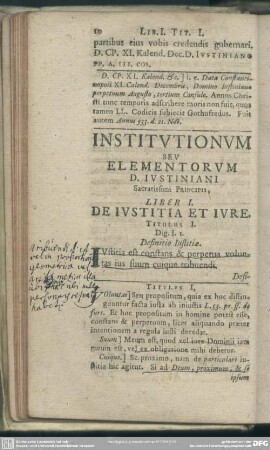 10 LIB. I. TIT. I.
partibus eius vobis credendis gubernari.
D. CP. XI. Kalend. Dec. D. IVSTINIANO
PP. A. III. COS.
D. CP. XI. Kalend. &c. ] i. e. Data Constanti-
nopoli XI. Calend. Decembris, Domino Iustiniano
perpetuum Augusto, tertium Consule. Annum Chri-
sti tunc temporis adscribere moris non fuit, quem
tamen Ll. Codicis subiecit Gothofredus. Fuit
autem Annus 533. d. 21. Nov.
INSTITVTIONVM
SEV
ELEMENTORVM
D. IVSTINIANI
Sacratissimi PRINCIPIS,
LIBER I.
DE IVSTITIA ET IVRE.
TITVLUS I.
Dig. I. 1.
Definitio Iustitiæ.
IVstitia est constans & perpetua volun-
tas ius suum cuique tribuendi.
Defi-
TITVLVS I.
Voluntas] Seu propositum, quia ex hoc distin-
guuntur facta iusta ab iniustis L. 53. pr. ff. de
furt. Et hoc propositum in homine potest esse,
constans & perpetuum, licet aliquando præter
intentionem a regula iusti decedat.
Suum] Meum est, quod vel iure Dominii iam
meum est, vel ex obligatione mihi debetur.
Cuique] Sc. proximo, nam de particulari iu-
stitia hic agitur. Si ad Deum, proximum, & se
ipsum